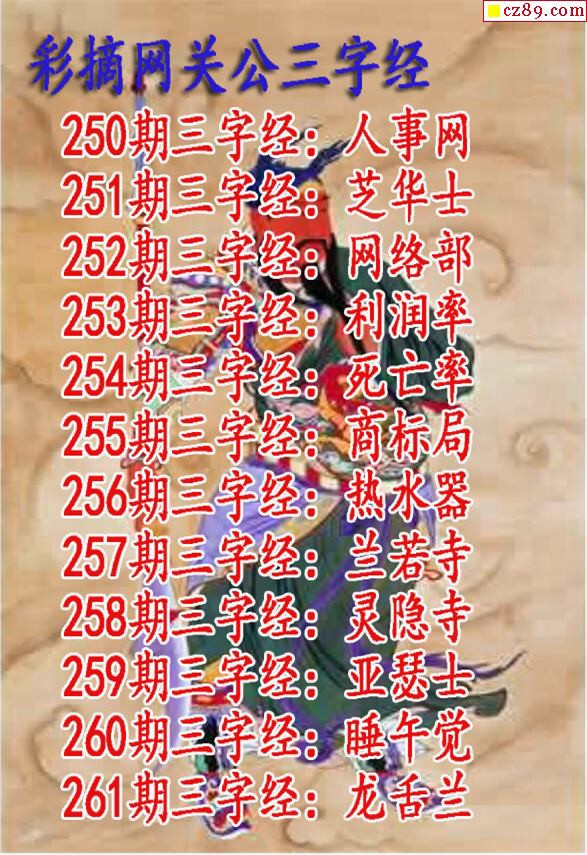 cz89.com
彩摘网关公三字经
250期三字经：人事网
251期三字经：芝华士
252期三字经：网络部
253期三字经：利润率
254期三字经：死亡率
255期三字经：商标局
256期三字经：热水器
257期三字经：兰若寺
258期三字经：灵隐寺
259期三字经：亚瑟士
260期三字经：睡午觉
261期三字经：龙舌兰